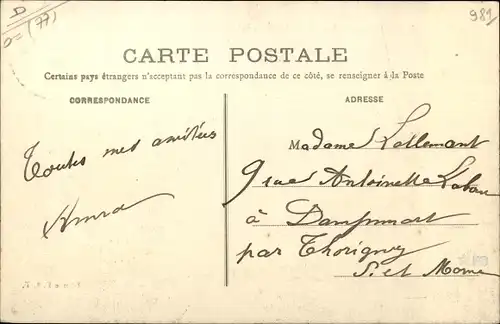 D= (77)
981
CARTE POSTALE
Certains pays étrangers n'acceptant pas la correspondance de ce côté, se renseigner à la Poste
CORRESPONDANCE
ADRESSE
Toutes mes amitiés
Madame Lallemant
9 rue Antoinette
à Dampmart
par Thorigny
S. et Marne